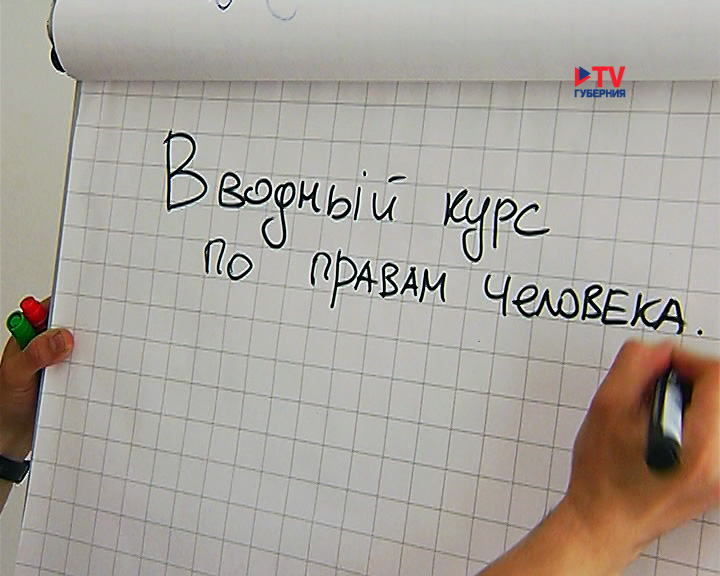 TV
ГУБЕРНИЯ
Вводный курс
по правам человека.